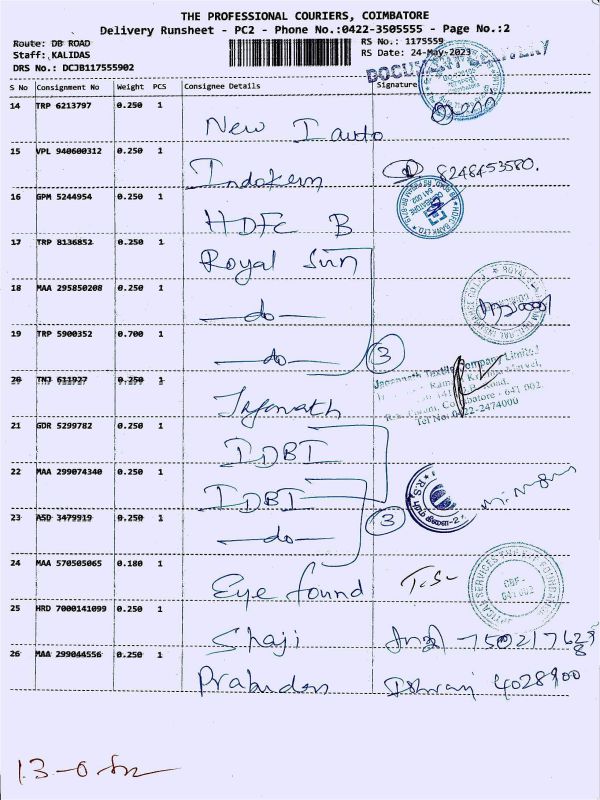 THE PROFESSIONAL COURIERS, COIMBATORE
Delivery Runsheet - PC2 - Phone No.:0422-3505555 - Page No.:2
Route: DB ROAD
RS No.: 1175559
Staff: KALIDAS
RS Date: 24-May-2023
DRS No.: DCJB117555902
DOCUMENT DELIVERY
S No Consignment No Weight PCS Consignee Details Signature
14 TRP 6213797 0.250 1
New I auto
15 VPL 940600312 0.250 1
Indokem 8248453580.
16 GPM 5244954 0.250 1
HDFC B
17 TRP 8136852 0.250 1
Royal Sun
18 MAA 295850208 0.250 1
—do—
19 TRP 5900352 0.700 1
—do— 3
Jagannath Textile Company Limited
20 TNJ 611927 0.250 1
Coimbatore - 641 002.
Tel No: 0422-2474000
21 GDR 5299782 0.250 1
IDBI
22 MAA 299074340 0.250 1
IDBI
23 ASD 3479919 0.250 1
—do— 3
24 MAA 570505065 0.180 1
Eye found T.S-
25 HRD 7000141099 0.250 1
Shaji
26 MAA 299044556 0.250 1
4028900